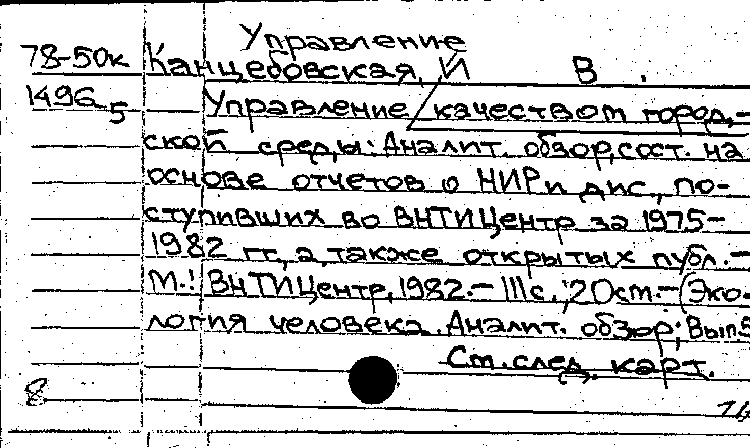 Управление
78-50к Канцебовская, И В.
1496 5 Управление качеством город-
ской среды: Аналит. обзор, сост. на
основе отчетов о НИР и дис., по-
ступивших во ВНТИЦентр за 1975-
1982 гг., а также открытых публ.-
М.: ВНТИЦентр, 1982.- 111 с.; 20 см.- (Эко-
логия человека. Аналит. обзор; Вып. 5
См. след. карт.
8